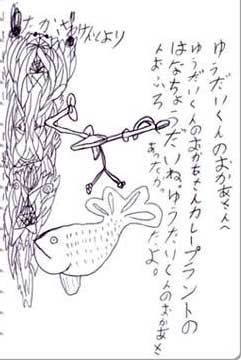 ゆうだいくんのおかあさんへ
ゆうだいくんのおかあさんカレープラントの
はなちょうだいね。ゆうだいくんのおかあさ
んおふろ たよ。
より